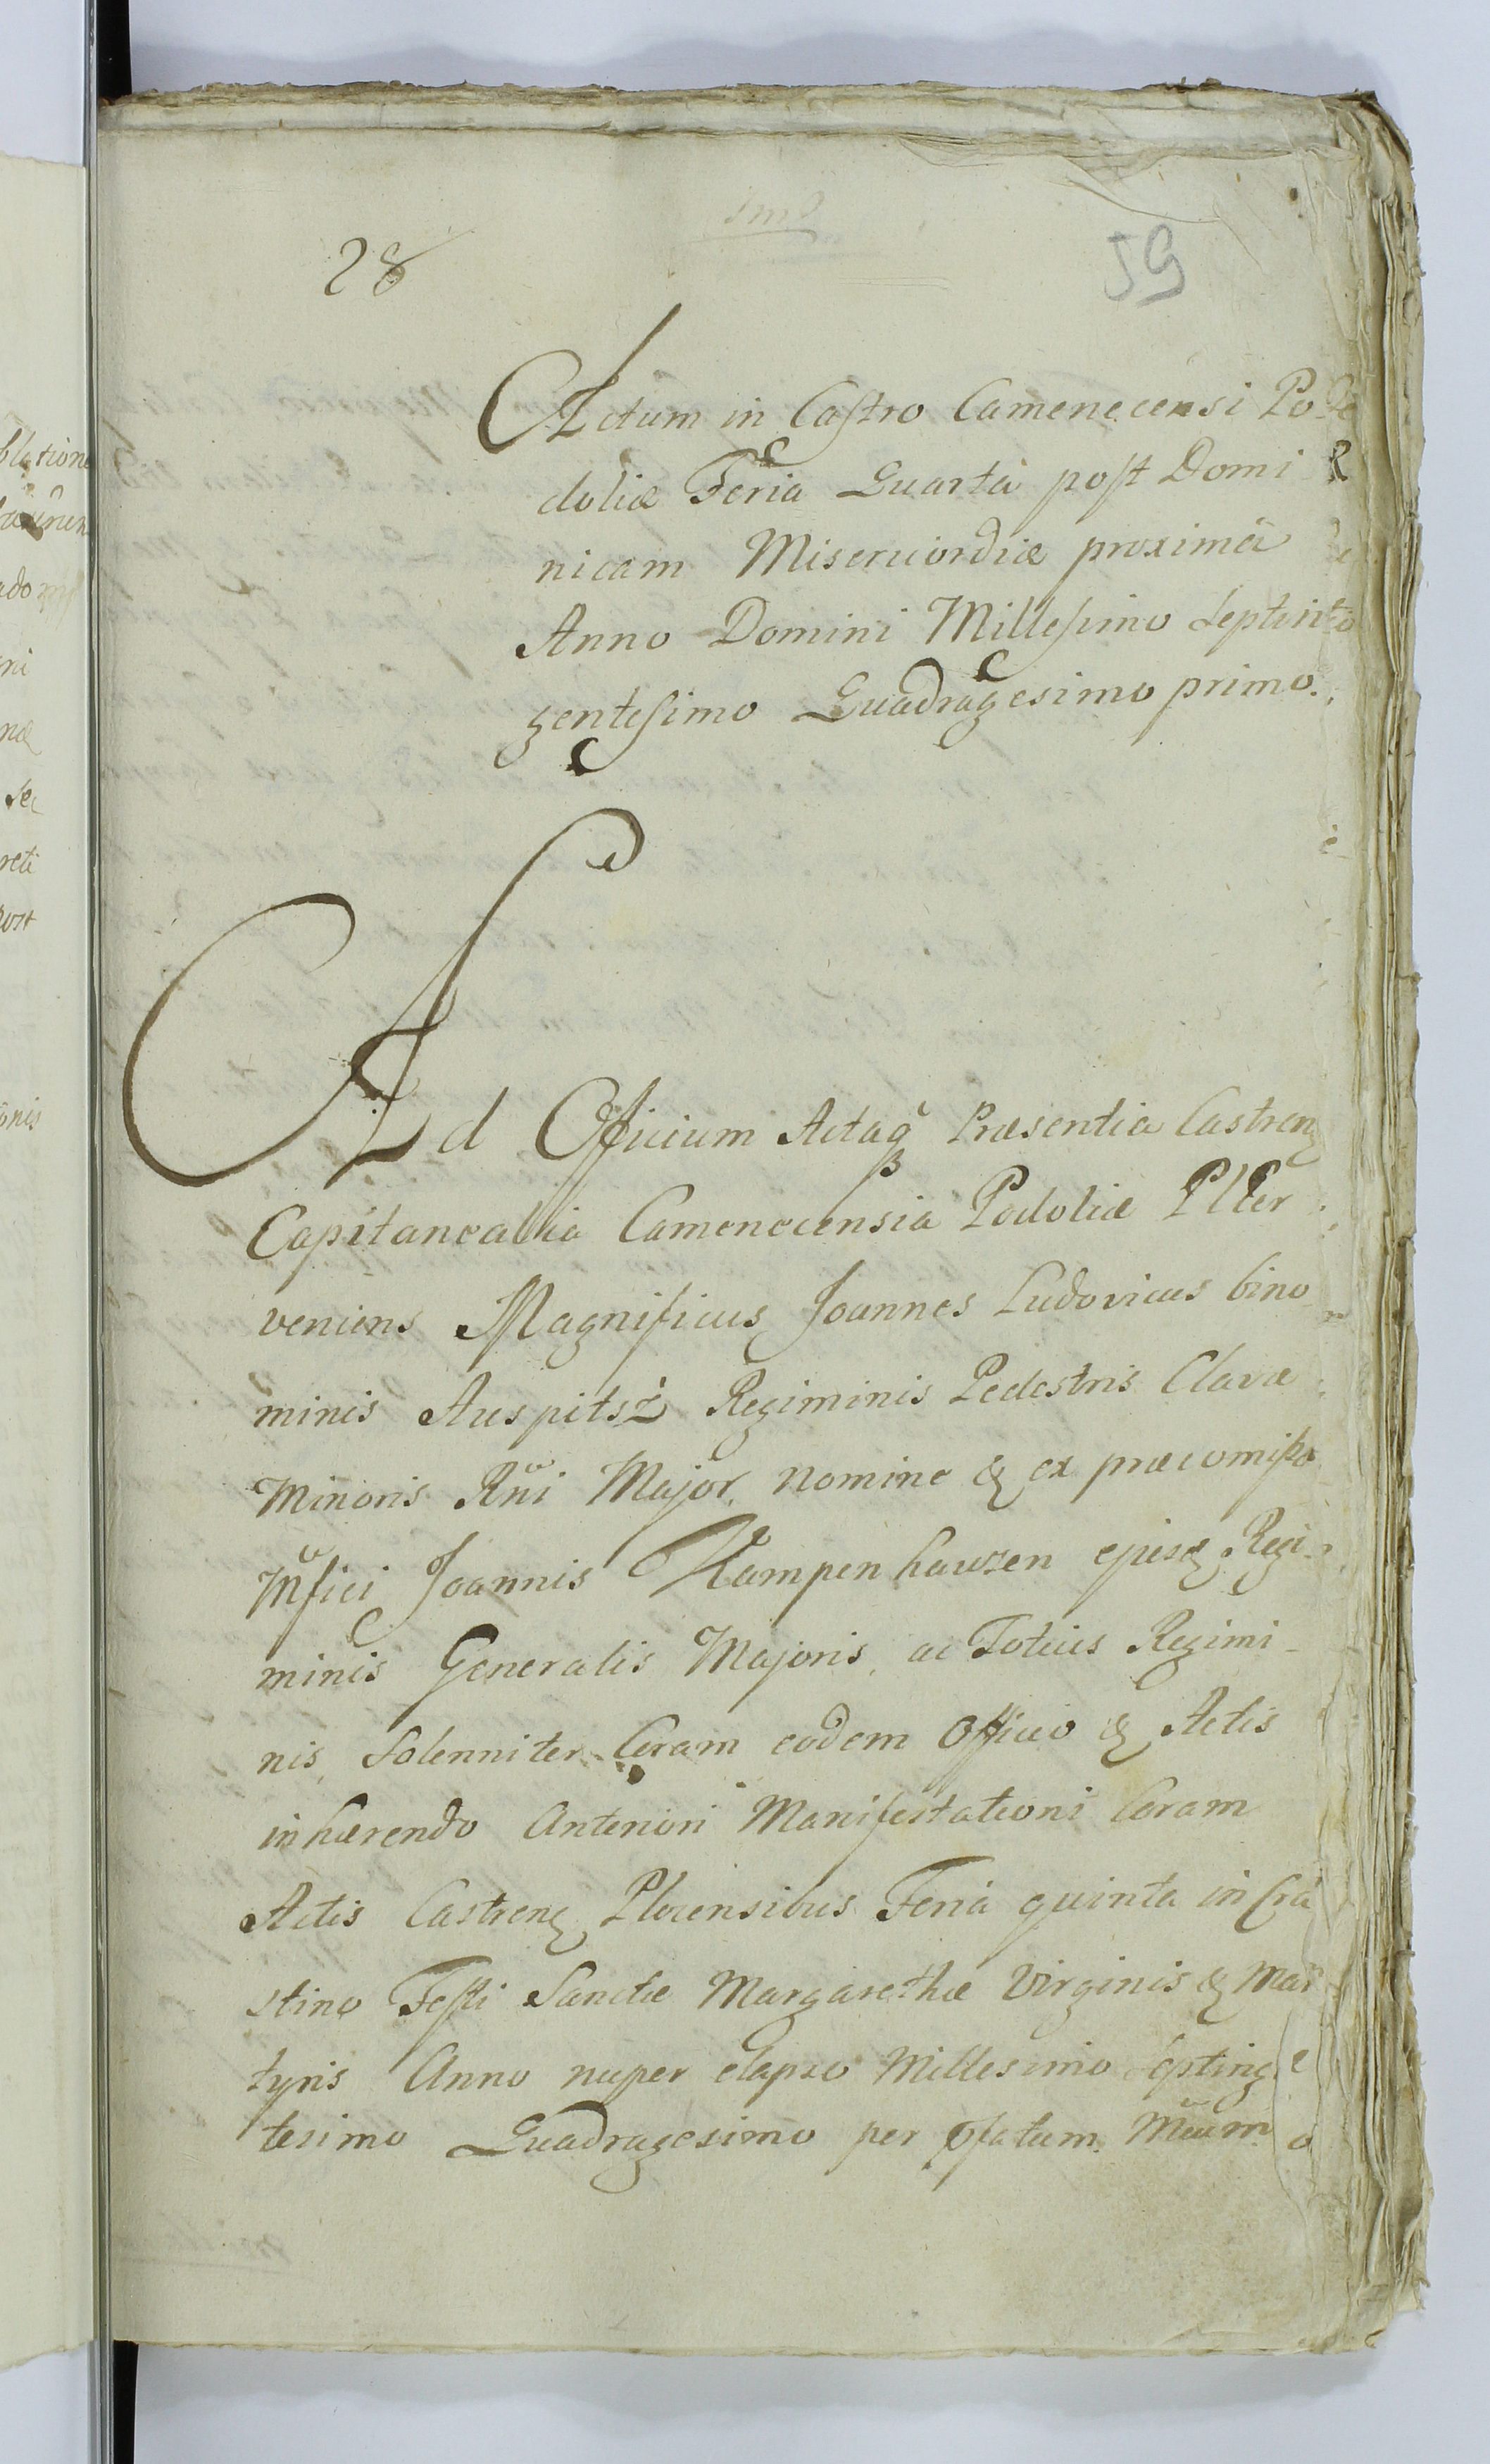 28
59
Actum in Castro Camenecensi Po
doliæ Feria Quarta post Domi
nicam Misericordiæ proxima
Anno Domini Millesimo Septin
gentesimo Quadragesimo primo.
Ad Officium Actaq Præsentia Castren
Capitanealia Camenecensia Podoliæ Pller
veniens Magnificus Joannes Ludovicus bino
minis Auspitsz Regiminis Pedestris Clavæ
Minoris Rñi Major nomine & ex præcomisso
Mfici Joannis Kampenhauzen ejusq Regi
minis Generalis Majoris, ac Totius Regimi-
nis, Solenniter Coram eodem Officio & Actis
inhærendo Anteriori Manifestationi Coram
Actis Castren Plocensibus Feria quinta in Cra
stino Festi Sanctæ Margarethæ Virginis & Mar
tyris Anno nuper elapso Millesimo Septing
tesimo Quadragesimo per pfatum